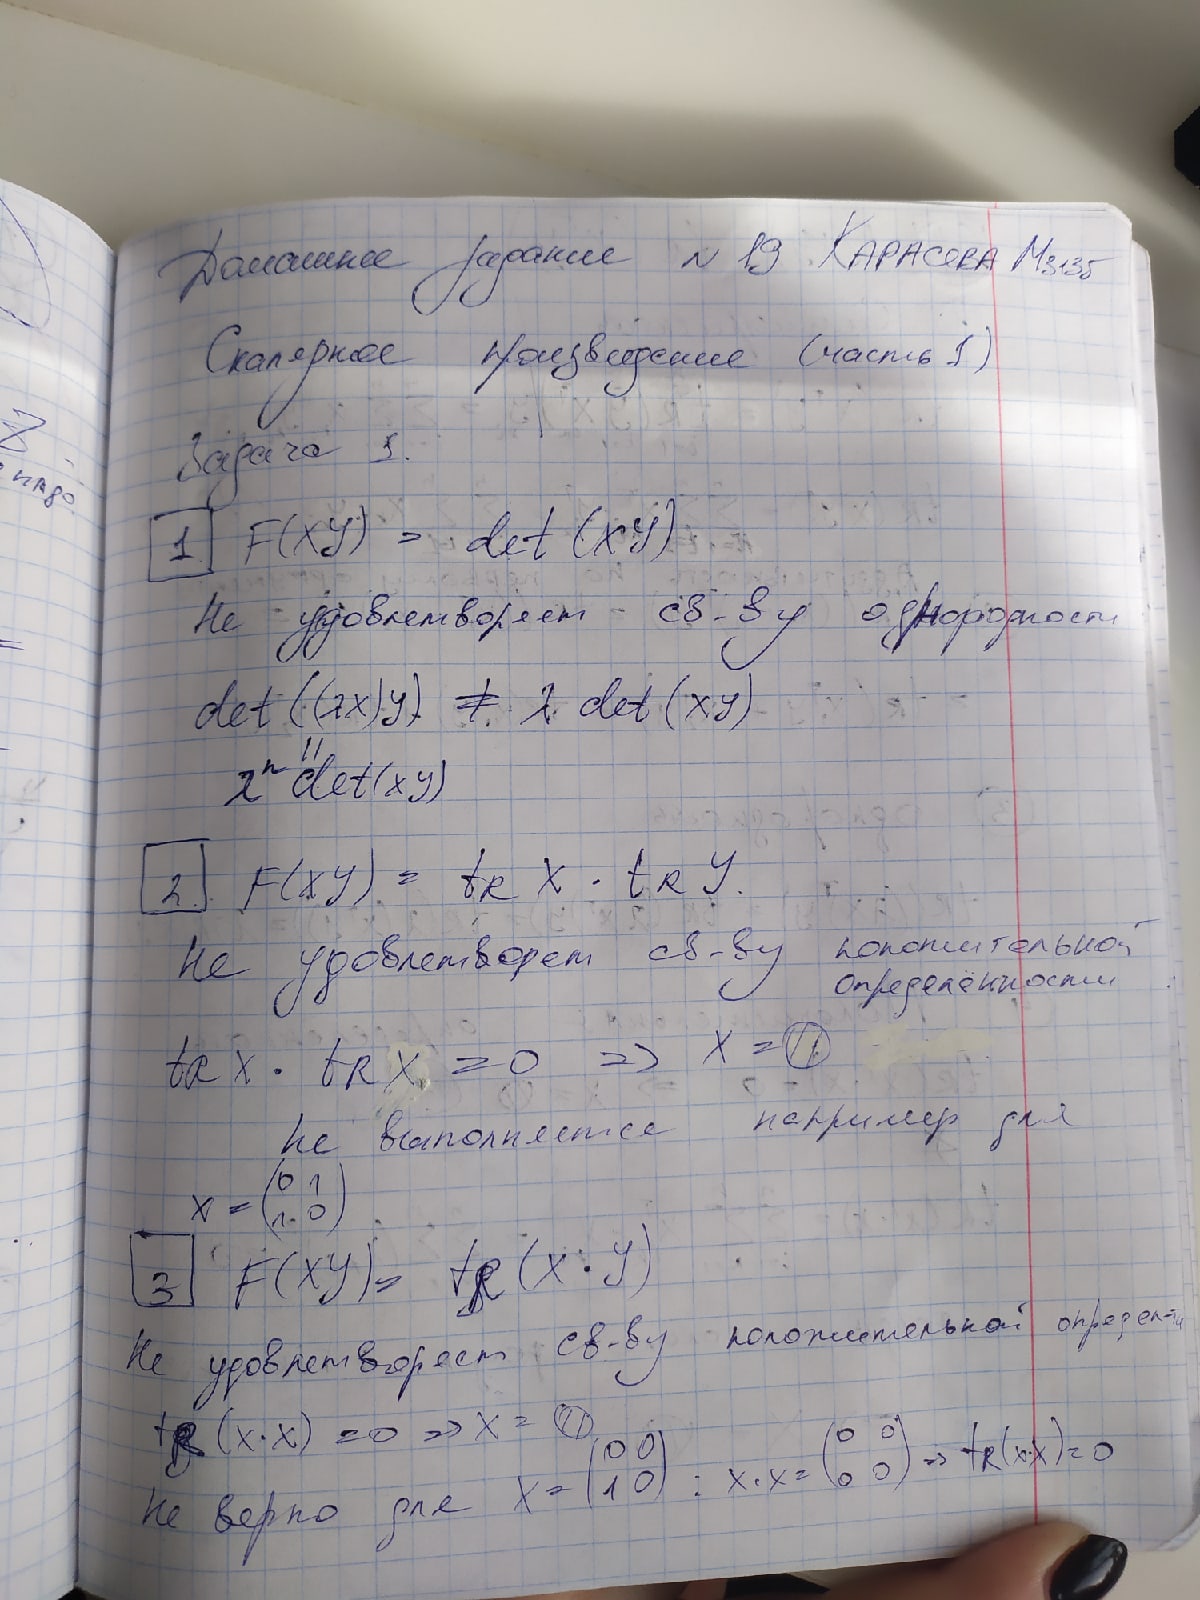 Домашнее задание №19 КАРАСЕВА М3135
Скалярное произведение (часть 1)
Задача 1.
1 F(XY) = det (XY)
Не удовлетворяет св-ву однородности
det ((λX)Y) ≠ λ det (XY)
λⁿ det(XY)
2. F(XY) = tR X · tR Y.
Не удовлетворяет св-ву положительной
определённости
tR X · tR X = 0 => X =
Не выполняется например для
X = (0 1
1 0)
3 F(XY) = tR (X · Y)
Не удовлетворяет св-ву положительной определ-ти
tR (X·X) = 0 => X =
Не верно для X = (0 0
1 0) : X·X = (0 0
0 0) => tR(X·X) = 0